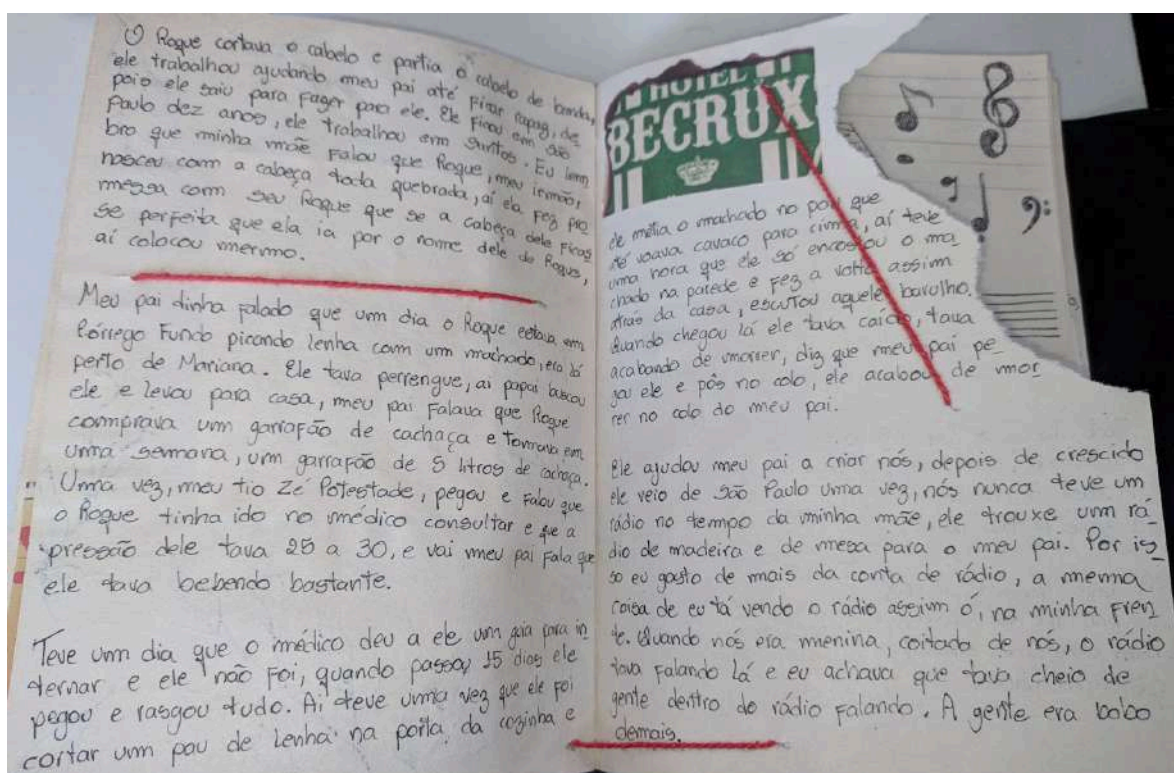 O Roque cortava o cabelo e partia o cabelo de banda,
ele trabalhou ajudando meu pai até ficar rapaz, de
pois ele saiu para fazer para ele. Ele ficou em São
Paulo dez anos, ele trabalhou em Santos. Eu lem
bro que minha mãe falou que Roque, meu irmão,
nasceu com a cabeça toda quebrada, aí ela fez pro
messa com Seu Roque que se a cabeça dele ficas
se perfeita que ela ia por o nome dele de Roque,
aí colocou mermo.
Meu pai dinha falado que um dia o Roque estava em
Córrego Fundo picando lenha com um machado, era lá
perto de Mariana. Ele tava perrengue, aí papai buscou
ele e levou para casa, meu pai falava que Roque
comprava um garrafão de cachaça e tomava em
uma semana, um garrafão de 5 litros de cachaça.
Uma vez, meu tio Zé Potestade, pegou e falou que
o Roque tinha ido no médico consultar e que a
pressão dele tava 25 a 30, e vai meu pai fala que
ele tava bebendo bastante.
Teve um dia que o médico deu a ele um guia para in
ternar e ele não foi, quando passou 15 dias ele
pegou e rasgou tudo. Aí teve uma vez que ele foi
cortar um pau de lenha na porta da cozinha e
HOTEL
BECRUX
ele metia o machado no pau que
até voava cavaco para cima, aí teve
uma hora que ele só encostou o ma
chado na parede e fez a volta assim
atrás da casa, escutou aquele barulho.
Quando chegou lá ele tava caído, tava
acabando de morrer, diz que meu pai pe
gou ele e pôs no colo, ele acabou de mor
rer no colo do meu pai.
Ele ajudou meu pai a criar nós, depois de crescido
ele veio de São Paulo uma vez, nós nunca teve um
rádio no tempo da minha mãe, ele trouxe um rá
dio de madeira e de mesa para o meu pai. Por is
so eu gosto de mais da conta de rádio, a merma
coisa de eu tá vendo o rádio assim ó, na minha fren
te. Quando nós era menina, coitado de nós, o rádio
tava falando lá e eu achava que tava cheio de
gente dentro do rádio falando. A gente era bobo
demais.